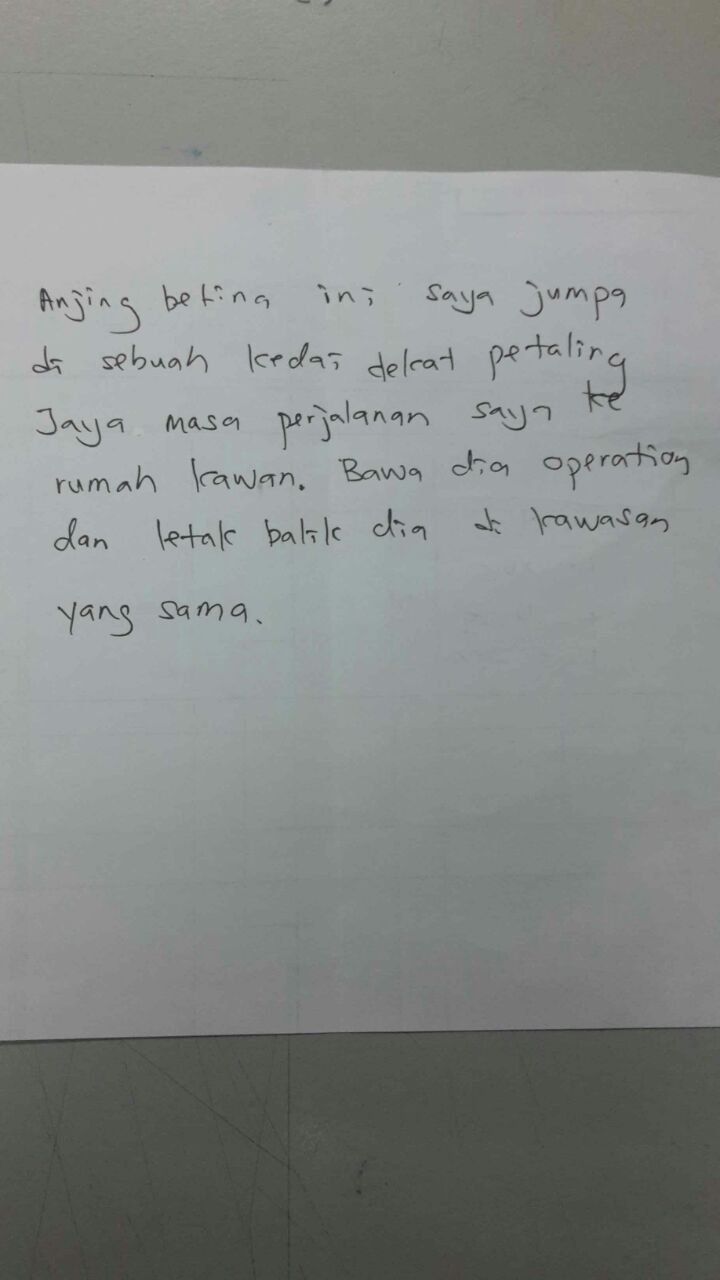 Anjing betina ini saya jumpa
di sebuah kedai dekat petaling
Jaya masa perjalanan saya ke
rumah kawan. Bawa dia operation
dan letak balik dia di kawasan
yang sama.